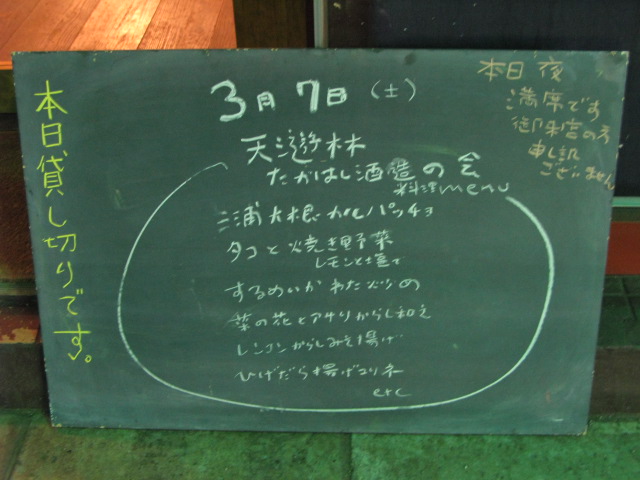 本日貸し切りです。
3月7日(土)
天遊林
たかはし酒造の会
料理menu
三浦大根カルパッチョ
タコと焼き野菜
レモンと塩で
するめいかわた炒め
菜の花とアサリからし和え
レンコンからしみそ揚げ
ひげだら揚げポリネ
etc
本日夜
満席です
御来店の方
申し訳
ございません